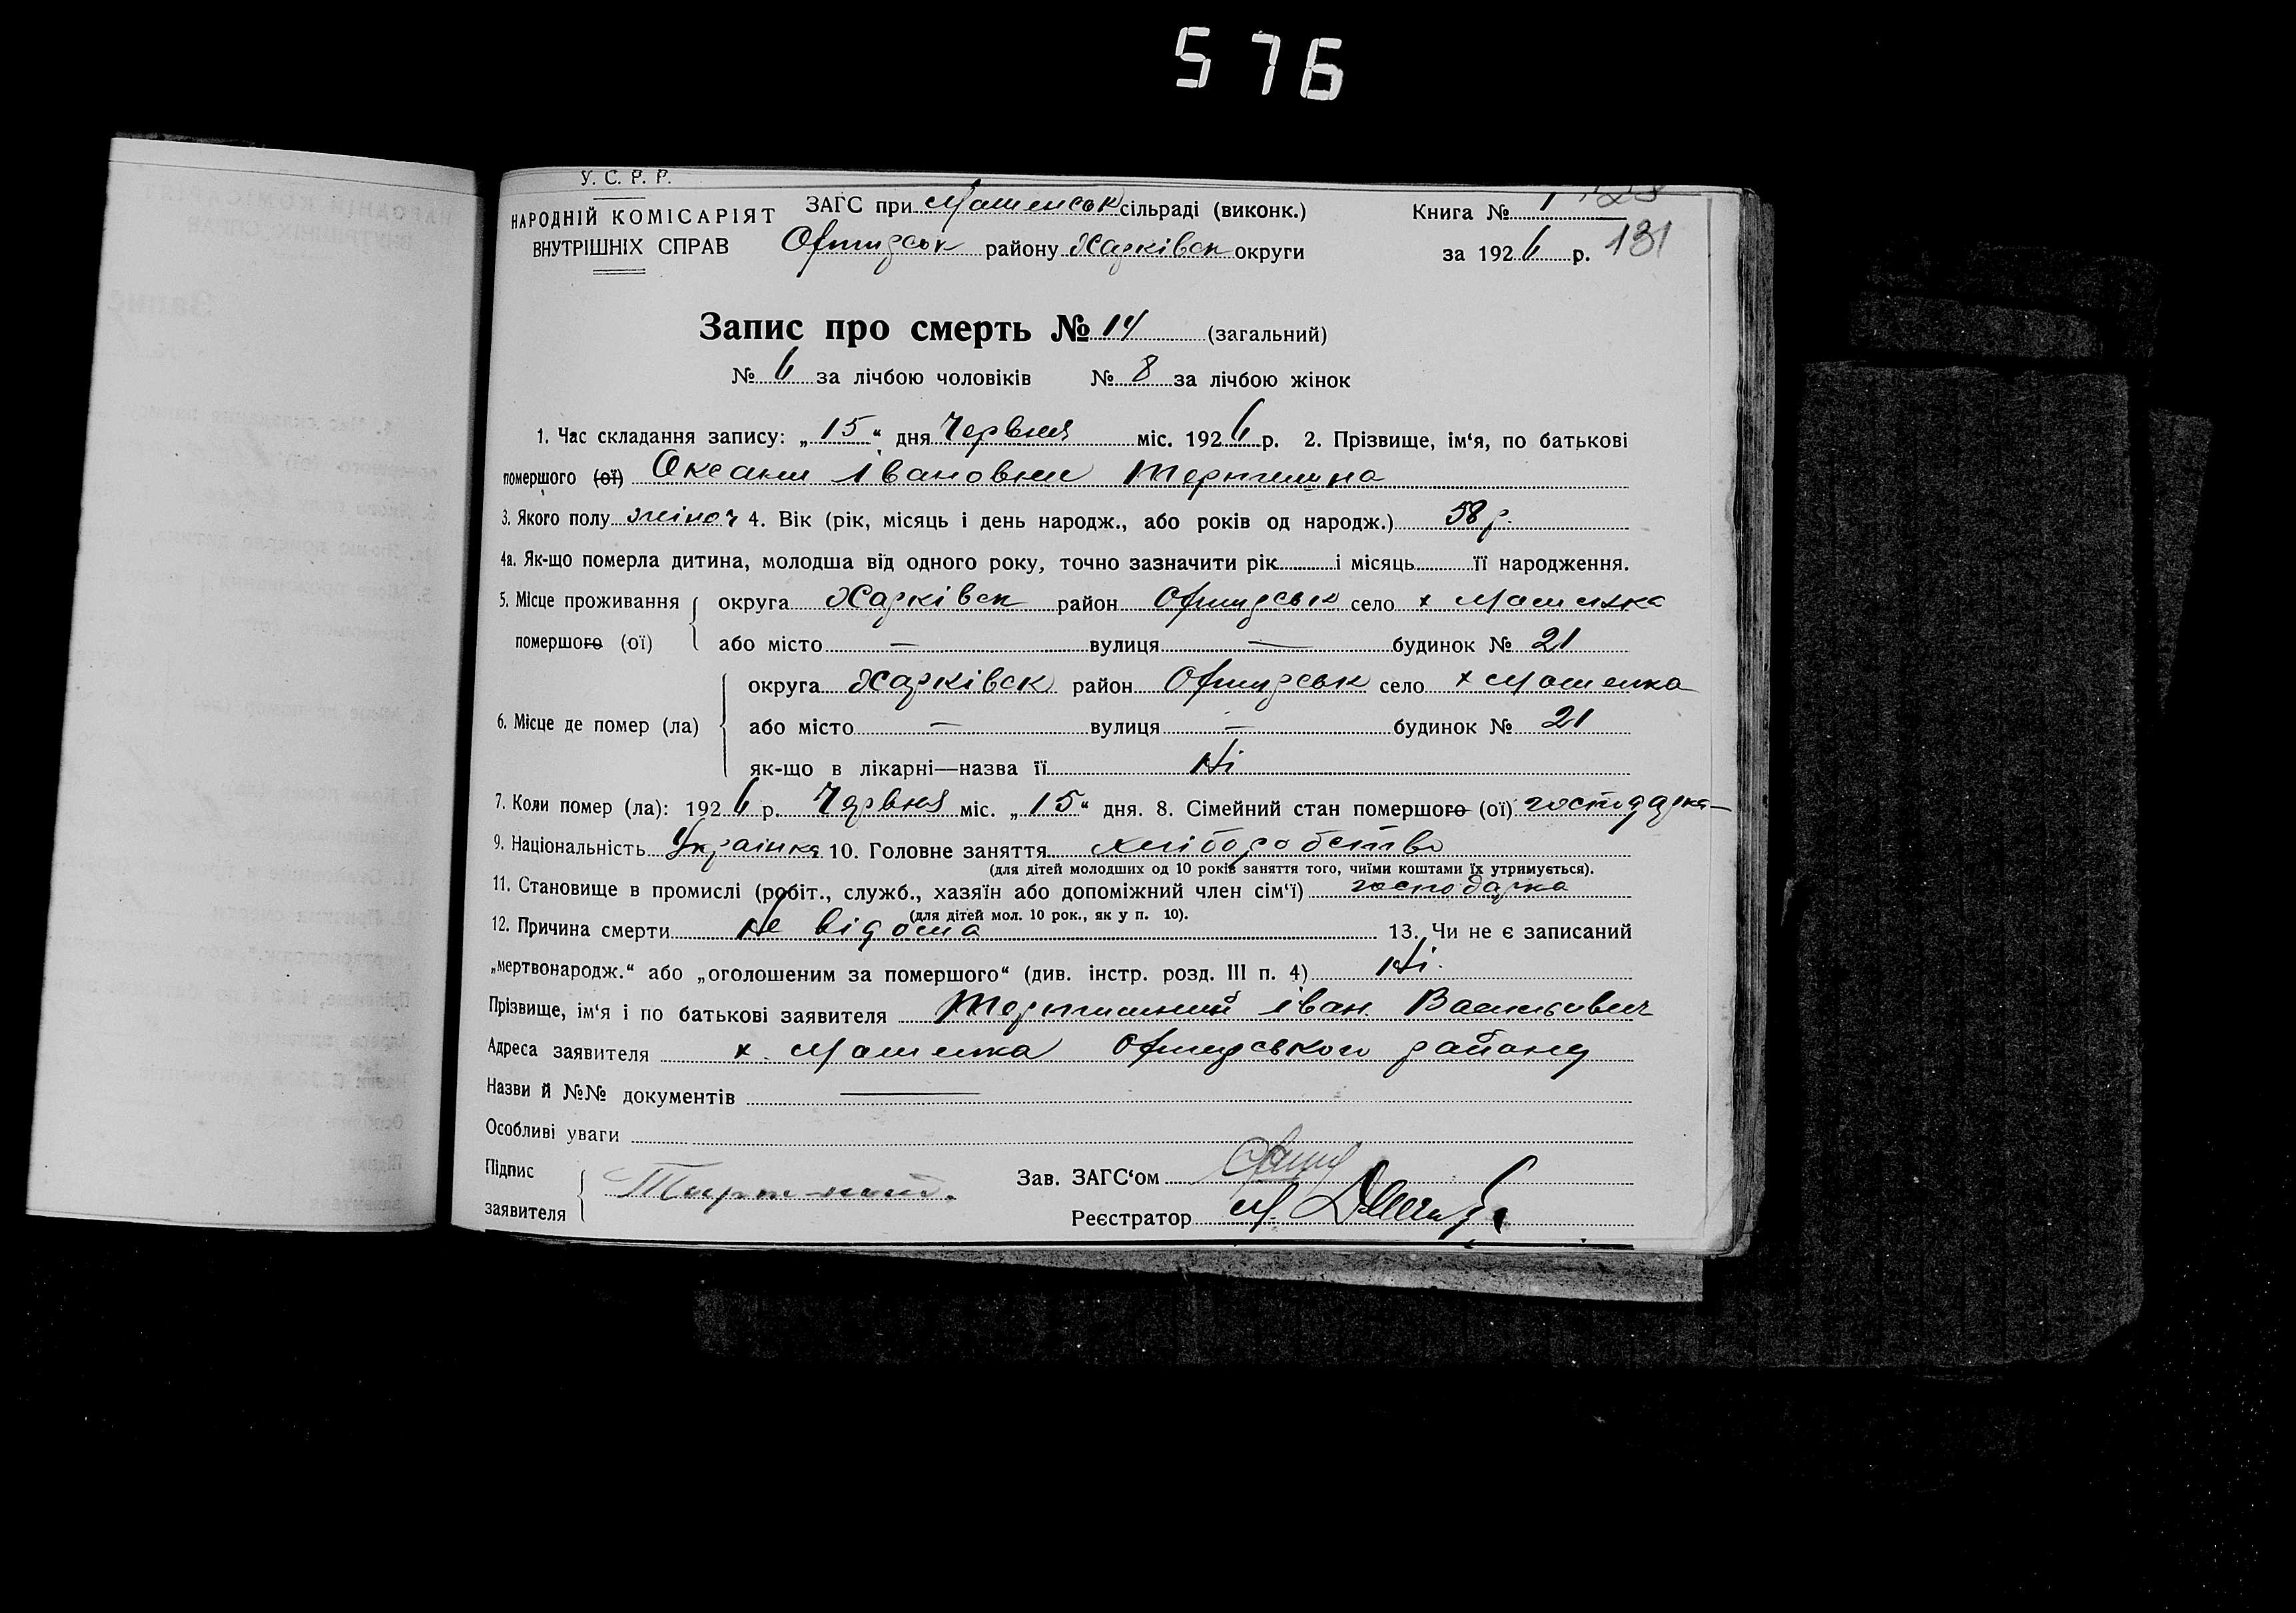 576
У. С. Р. Р.
НАРОДНІЙ КОМІСАРІЯТ
ВНУТРІШНІХ СПРАВ
ЗАГС при Мошенськ сільраді (виконк.)
району Харківск округи
Книга № 1
за 1926 р. 131
Запис про смерть № 14 (загальний)
№ 6 за лічбою чоловіків № 8 за лічбою жінок
1. Час складання запису: „15“ дня Червня міс. 1926 р. 2. Прізвище, ім‘я, по батькові
помершого (ої) Оксани Івановни
3. Якого полу жіноч 4. Вік (рік, місяць і день народж., або років од народж.) 58 р.
4а. Як-що померла дитина, молодша від одного року, точно зазначити рік і місяць її народження.
5. Місце проживання помершого (ої) { округа Харківск район село х Мошенка
або місто — вулиця — будинок № 21
6. Місце де помер (ла) { округа Харківск район село х Мошенка
або місто — вулиця — будинок № 21
як-що в лікарні—назва її Ні
7. Коли помер (ла): 1926 р. Червня міс. „15“ дня. 8. Сімейний стан помершого (ої) господарка
9. Національність Українка 10. Головне заняття хліборобство
(для дітей молодших од 10 років заняття того, чиїми коштами їх утримується).
11. Становище в промислі (робіт., служб., хазяїн або допоміжний член сім‘ї) господарка
(для дітей мол. 10 рок., як у п. 10).
12. Причина смерти Не відома 13. Чи не є записаний
„мертвонародж.“ або „оголошеним за помершого“ (див. інстр. розд. III п. 4) Ні.
Прізвище, ім‘я і по батькові заявителя Іван Васильович
Адреса заявителя х. Мошенка району
Назви й №№ документів —
Особливі уваги
Підпис
заявителя
Зав. ЗАГС‘ом
Реєстратор